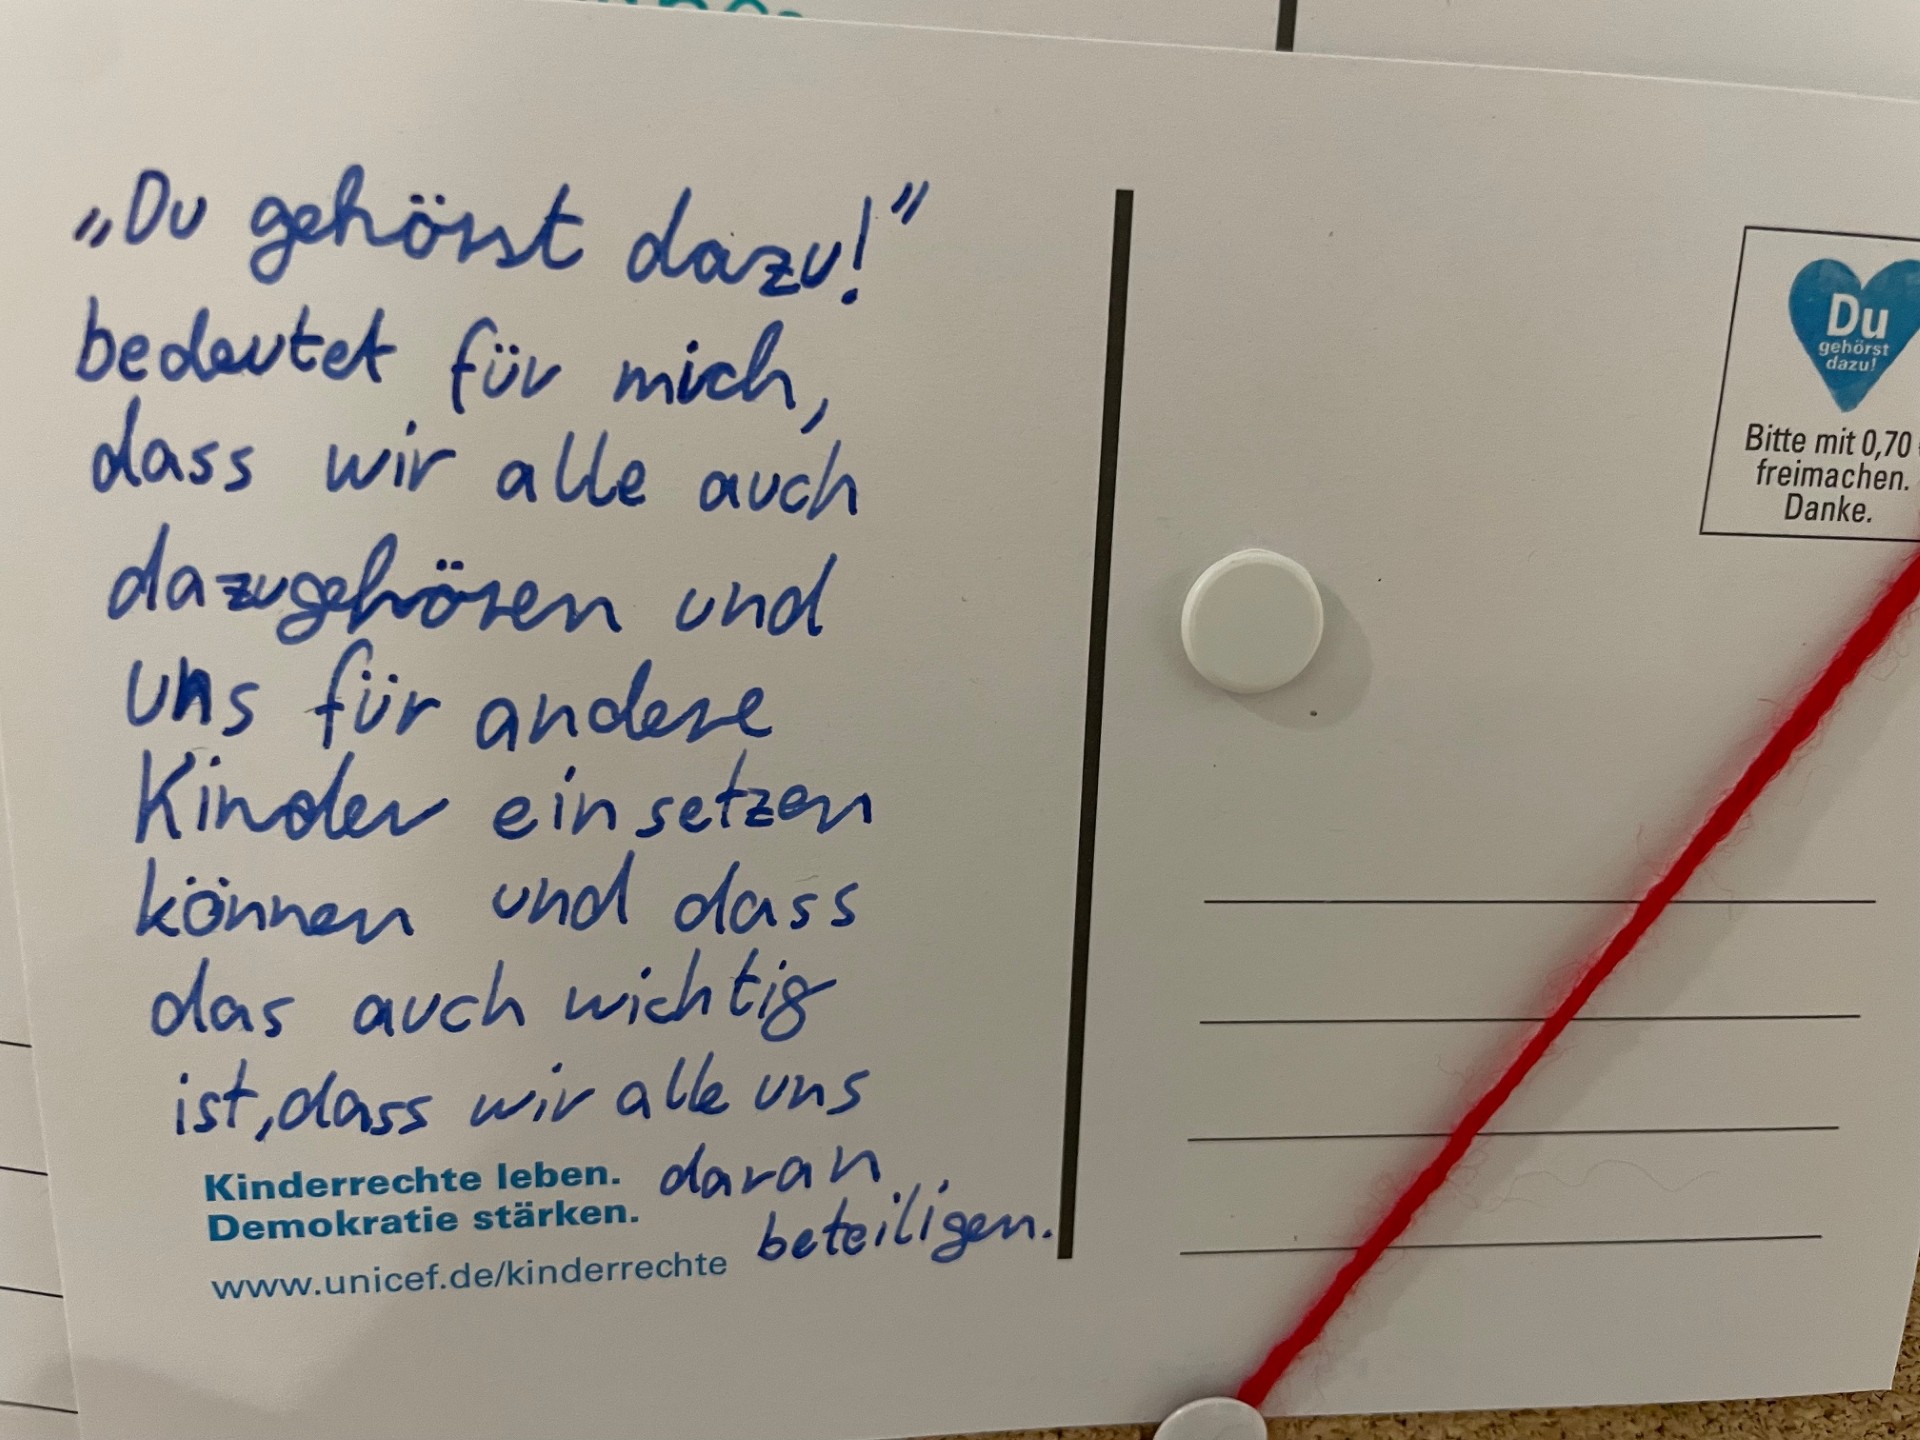 „Du gehörst dazu!"
bedeutet für mich,
dass wir alle auch
dazugehören und
uns für andere
Kinder einsetzen
können und dass
das auch wichtig
ist, dass wir alle uns
daran
beteiligen.
Kinderrechte leben.
Demokratie stärken.
www.unicef.de/kinderrechte
Du
gehörst
dazu!
Bitte mit 0,70
freimachen.
Danke.